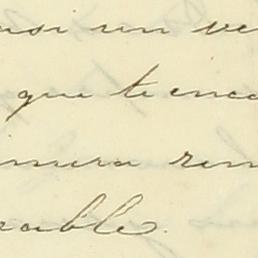 nsi un ve
que te enco
imera rem
rable.